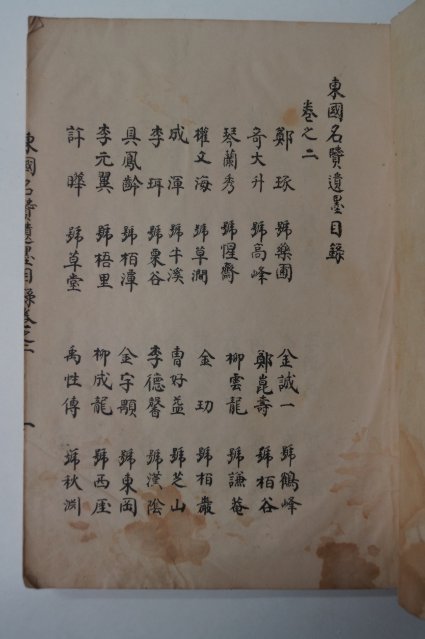 東國名牘遺墨目錄
卷之二
鄭琢 號藥圃 金誠一 號鶴峰
奇大升 號高峰 鄭崑壽 號栢谷
琴蘭秀 號惺齋 柳雲龍 號謙菴
權文海 號草澗 金玏 號栢巖
成渾 號牛溪 曺好益 號芝山
李珥 號栗谷 李德馨 號漢陰
具鳳齡 號栢潭 金宇顒 號東岡
李元翼 號梧里 柳成龍 號西厓
許曄 號草堂 禹性傳 號秋淵
東國名牘遺墨目錄卷之二 一